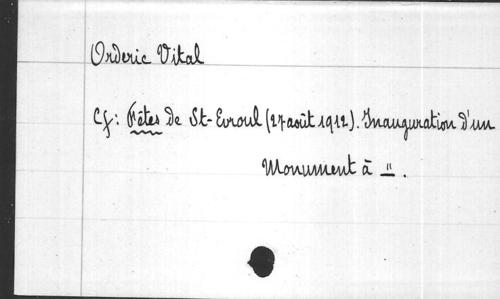 Orderic Vital
Cf: Fêtes de St-Evroul (27 août 1912). Inauguration d'un
Monument à " .